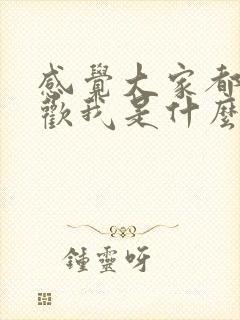 感覺大家都
歡我是什麼
鍾靈呀